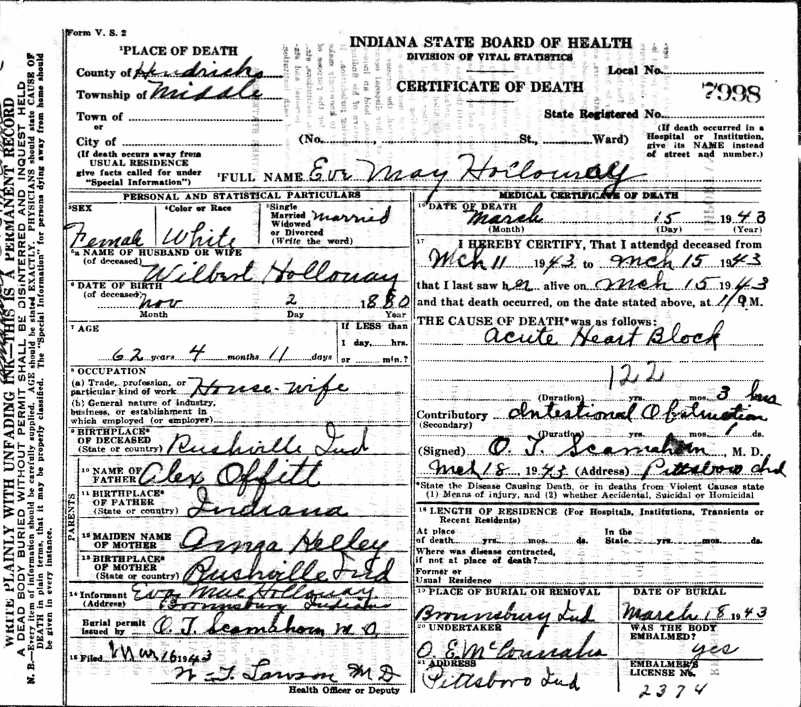 Form V. S. 2
INDIANA STATE BOARD OF HEALTH
DIVISION OF VITAL STATISTICS
CERTIFICATE OF DEATH
Local No.
7998
State Registered No.
¹PLACE OF DEATH
County of Hendricks
Township of Middle
Town of
or
City of
(No. St., Ward)
(If death occurred in a Hospital or Institution, give its NAME instead of street and number.)
(If death occurs away from
USUAL RESIDENCE
give facts called for under
"Special Information")
²FULL NAME Eva May Holloway
PERSONAL AND STATISTICAL PARTICULARS
³SEX
Female
⁴Color or Race
White
⁵Single
Married
Widowed
or Divorced
(Write the word)
married
NAME OF HUSBAND OR WIFE
(of deceased)
Wilbert Holloway
⁶DATE OF BIRTH
(of deceased)
Nov 2 1880
Month Day Year
⁷AGE
62 years 4 months 11 days
If LESS than
1 day, hrs.
or min.?
⁸OCCUPATION
(a) Trade, profession, or
particular kind of work House-wife
(b) General nature of industry,
business, or establishment in
which employed (or employer)
⁹BIRTHPLACE*
OF DECEASED
(State or country) Rushville Ind
PARENTS
¹⁰NAME OF
FATHER Alex Offitt
¹¹BIRTHPLACE*
OF FATHER
(State or country) Indiana
¹²MAIDEN NAME
OF MOTHER
¹³BIRTHPLACE*
OF MOTHER
(State or country) Rushville Ind
¹⁴Informant Eva Mae Holloway
(Address) Brownsburg Indiana
Burial permit
issued by O. T. Scamahorn M D
¹⁵Filed Mar 16 1943
Lawson M D
Health Officer or Deputy
MEDICAL CERTIFICATE OF DEATH
¹⁶DATE OF DEATH
March 15 1943
(Month) (Day) (Year)
¹⁷I HEREBY CERTIFY, That I attended deceased from
Mch 11 1943 to Mch 15 1943
that I last saw her alive on Mch 15 1943
and that death occurred, on the date stated above, at M.
THE CAUSE OF DEATH* was as follows:
Acute Heart Block
122
(Duration) yrs. mos. 3 hrs
Contributory Intestional Obstruction
(Secondary)
(Duration) yrs. mos. ds.
(Signed) O. T. Scamahorn, M. D.
Mch 18 1943 (Address) Pittsboro Ind
*State the Disease Causing Death, or in deaths from Violent Causes state
(1) Means of injury, and (2) whether Accidental, Suicidal or Homicidal
¹⁸LENGTH OF RESIDENCE (For Hospitals, Institutions, Transients or
Recent Residents)
At place
of death yrs. mos. ds.
In the
State yrs. mos. ds.
Where was disease contracted,
if not at place of death?
Former or
Usual Residence
¹⁹PLACE OF BURIAL OR REMOVAL
Brownsburg Ind
DATE OF BURIAL
March 18 1943
²⁰UNDERTAKER
WAS THE BODY
EMBALMED?
yes
²¹ADDRESS
Pittsboro Ind
EMBALMER'S
LICENSE No.
2374
WRITE PLAINLY WITH UNFADING INK—THIS IS A PERMANENT RECORD
A DEAD BODY BURIED WITHOUT PERMIT SHALL BE DISINTERRED AND INQUEST HELD
N. B.—Every item of information should be carefully supplied. AGE should be stated EXACTLY. PHYSICIANS should state CAUSE OF
DEATH in plain terms, that it may be properly classified. The "Special Information" for persons dying away from home should
be given in every instance.